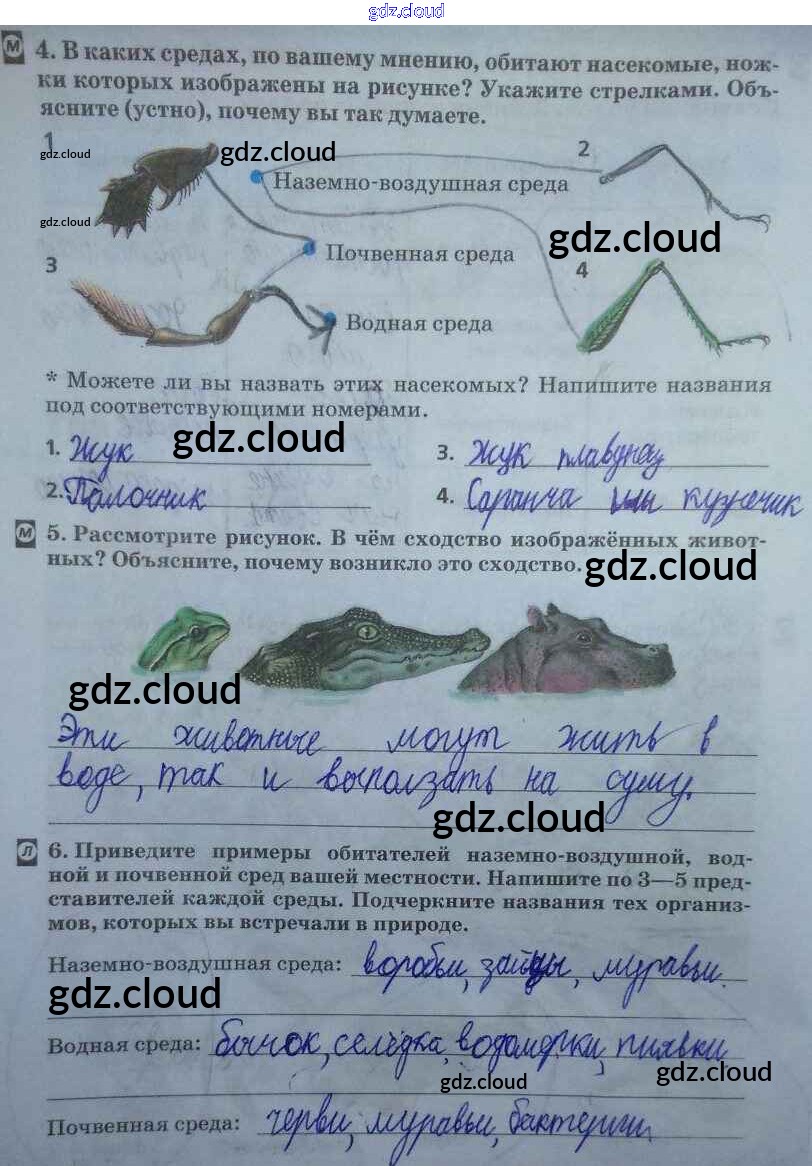 gdz.cloud
М 4. В каких средах, по вашему мнению, обитают насекомые, нож-
ки которых изображены на рисунке? Укажите стрелками. Объ-
ясните (устно), почему вы так думаете.
1
gdz.cloud
gdz.cloud
2
Наземно-воздушная среда
gdz.cloud
gdz.cloud
Почвенная среда
3
4
Водная среда
* Можете ли вы назвать этих насекомых? Напишите названия
под соответствующими номерами.
gdz.cloud
1. Жук
3. Жук плавунец
2. Палочник
4. Саранча или кузнечик
М 5. Рассмотрите рисунок. В чём сходство изображённых живот-
ных? Объясните, почему возникло это сходство.
gdz.cloud
gdz.cloud
Эти животные могут жить в
воде, так и выползать на сушу.
gdz.cloud
Л 6. Приведите примеры обитателей наземно-воздушной, вод-
ной и почвенной сред вашей местности. Напишите по 3—5 пред-
ставителей каждой среды. Подчеркните названия тех организ-
мов, которых вы встречали в природе.
Наземно-воздушная среда: воробьи, зайцы, муравьи.
gdz.cloud
Водная среда: бычок, селёдка, водомерки, пиявки
gdz.cloud
gdz.cloud
Почвенная среда: черви, муравьи, бактерии.